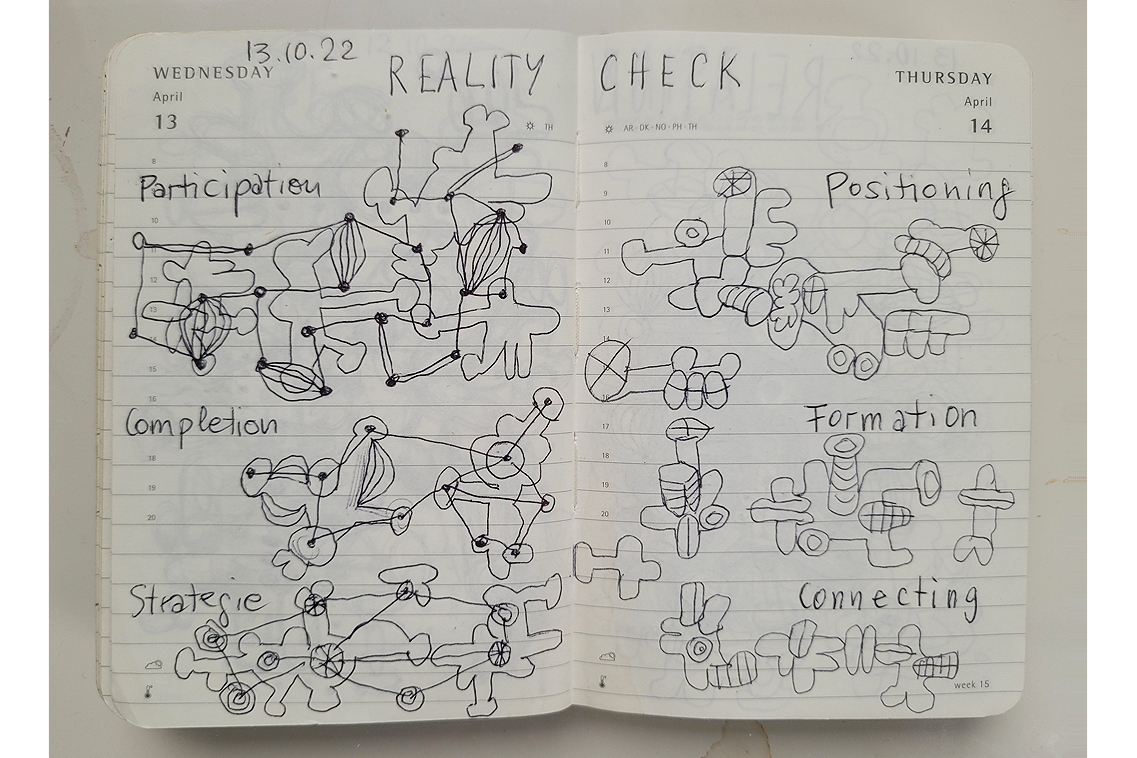 13.10.22
WEDNESDAY
April
13
REALITY CHECK
THURSDAY
April
14
TH
AR · DK · NO · PH · TH
8
Participation
10
11
12
13
15
16
Completion
18
19
20
Strategie
8
9
Positioning
10
11
12
13
14
16
17
Formation
18
19
20
Connecting
week 15